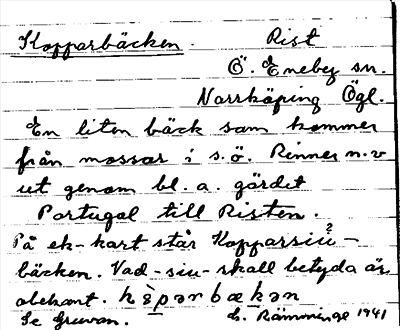 Kopparbäcken. Rist
Ö. Eneby sn.
Norrköping Ögl.
En liten bäck som kommer
från mossar i s.ö. Rinner n.v
ut genom bl. a. gärdet
Portugal till Risten.
På ek-kart står Kopparsiu?-
bäcken. Vad -siu- skall betyda är
obekant.
Se Gruvan. Rämminge 1941